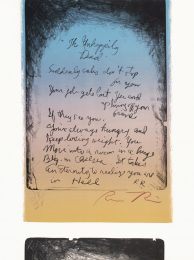 "The Unhappily
Dead"
Suddenly cabs don't stop
for you
Your job gets lost, you and
your
If this is you,
You're always hungry and
Keep losing weight. You
Move into a room in a huge
Bldg. in Chelsea It takes
an eternity to realize you are
in Hell
RR